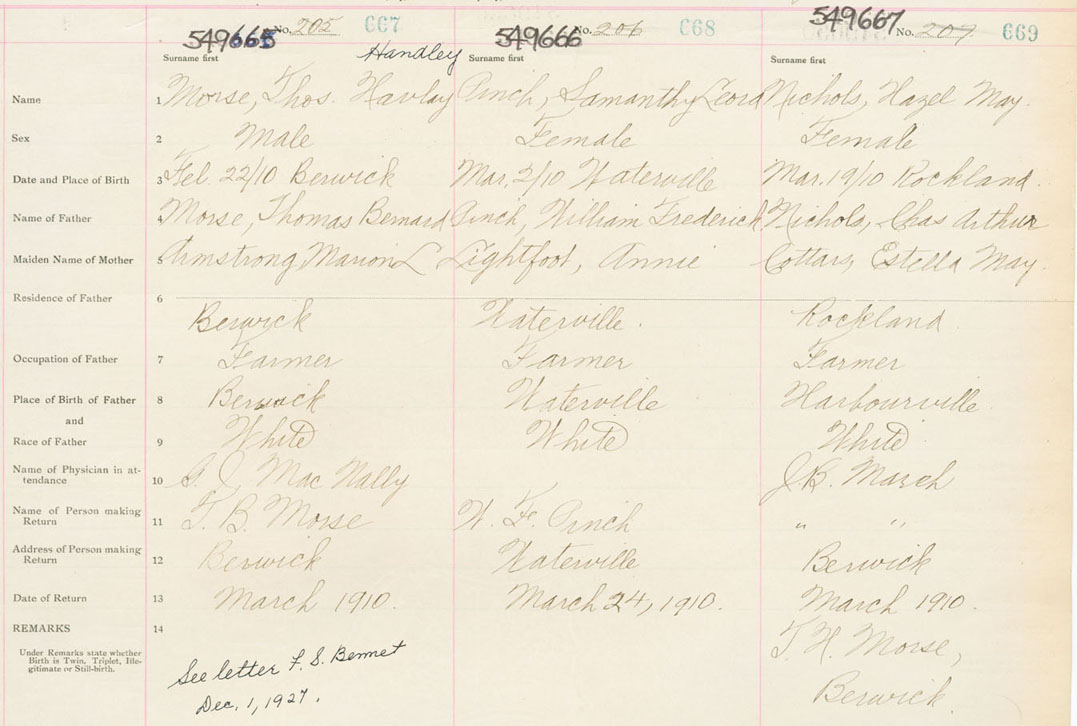 549665 No. 205 667 549666 No. 206 668 549667 No. 207 669
Handley
Surname first Surname first Surname first
Name 1 Morse, Thos. Havlay Pinch, Samanthy Leora Nichols, Hazel May.
Sex 2 Male Female Female
Date and Place of Birth 3 Feb. 22/10 Berwick Mar. 2/10 Waterville Mar. 19/10 Rockland.
Name of Father 4 Morse, Thomas Bernard Pinch, William Frederick Nichols, Chas Arthur
Maiden Name of Mother 5 Armstrong, Marion L Lightfoot, Annie Cottars, Estella May.
Residence of Father 6
Berwick Waterville. Rockland.
Occupation of Father 7 Farmer Farmer Farmer
Place of Birth of Father 8 Berwick Waterville Harbourville.
and
Race of Father 9 White White White
Name of Physician in at-
tendance 10 MacNally J.B. March
Name of Person making
Return 11 T. B. Morse W. F. Pinch " "
Address of Person making
Return 12 Berwick Waterville Berwick
Date of Return 13 March 1910. March 24, 1910. March 1910.
REMARKS 14
Under Remarks state whether
Birth is Twin, Triplet, Ille-
gitimate or Still-birth.
See letter F. S. Bennet
Dec. 1, 1927.
T. H. Morse,
Berwick.